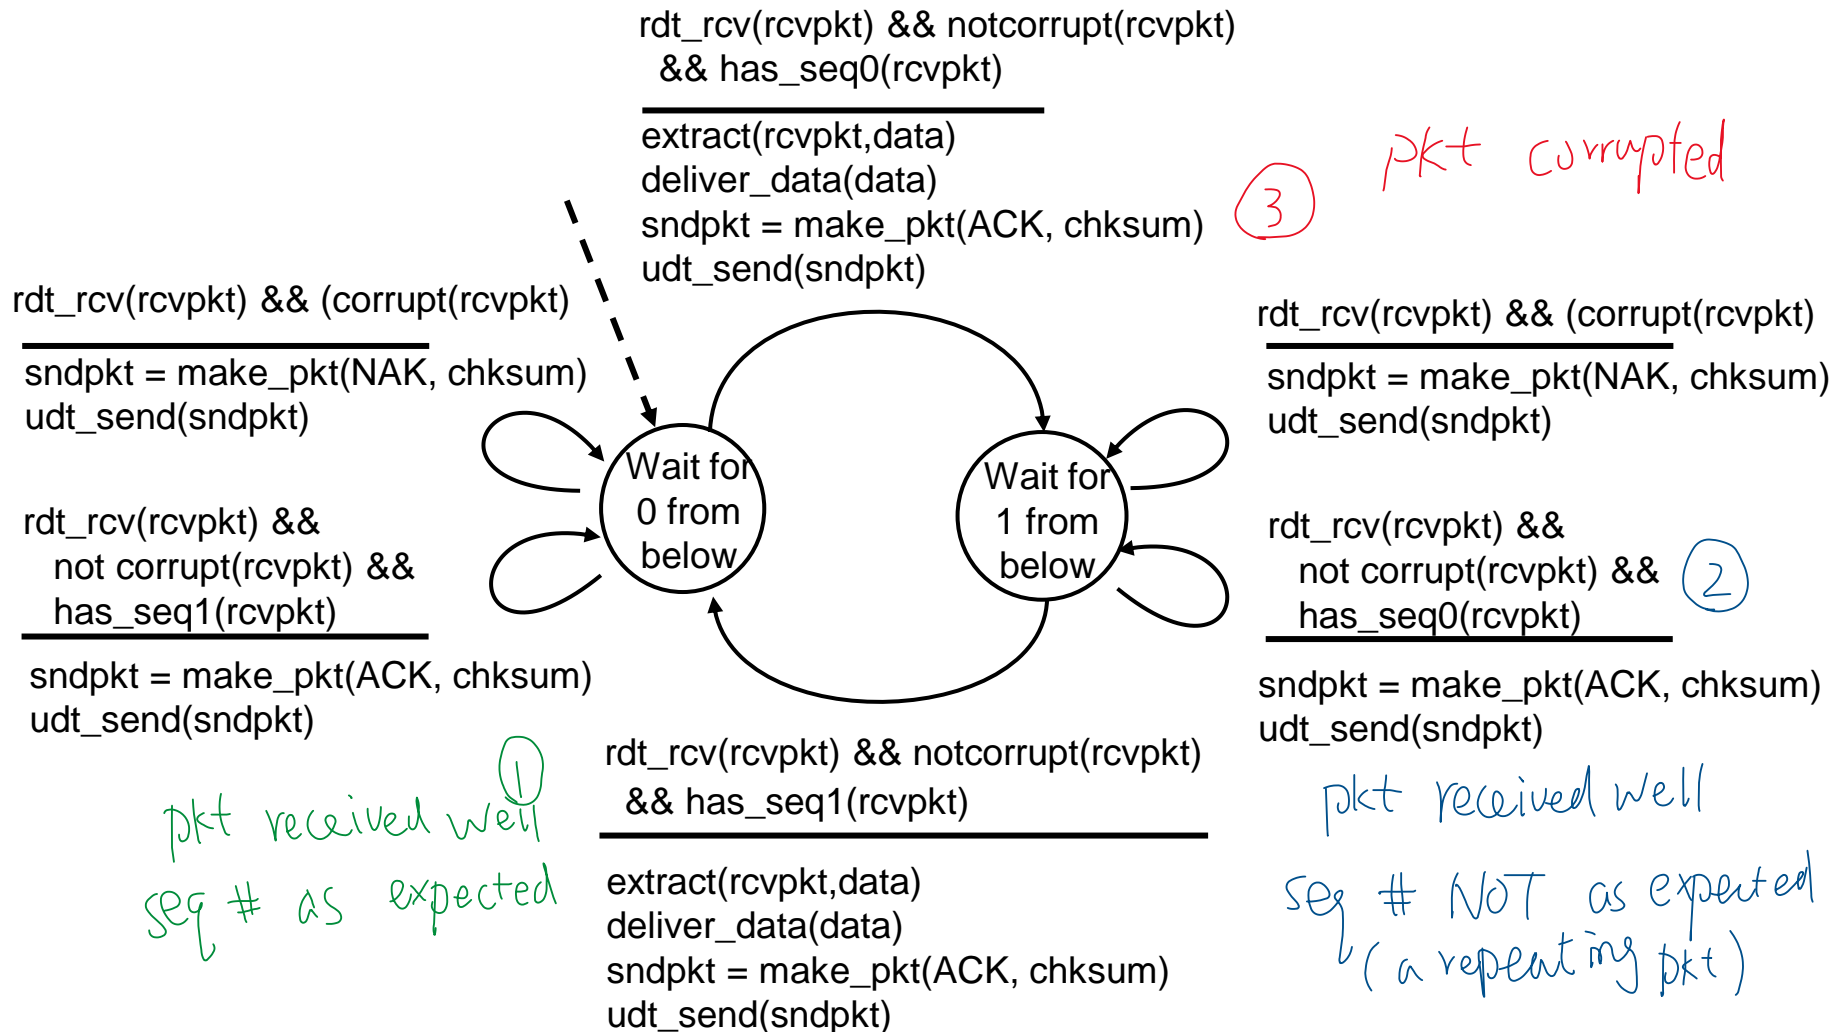 rdt_rcv(rcvpkt) && notcorrupt(rcvpkt)
&& has_seq0(rcvpkt)
extract(rcvpkt,data)
deliver_data(data)
sndpkt = make_pkt(ACK, chksum)
udt_send(sndpkt)
3
pkt corrupted
rdt_rcv(rcvpkt) && (corrupt(rcvpkt)
sndpkt = make_pkt(NAK, chksum)
udt_send(sndpkt)
rdt_rcv(rcvpkt) &&
not corrupt(rcvpkt) &&
has_seq1(rcvpkt)
sndpkt = make_pkt(ACK, chksum)
udt_send(sndpkt)
Wait for
0 from
below
Wait for
1 from
below
rdt_rcv(rcvpkt) && (corrupt(rcvpkt)
sndpkt = make_pkt(NAK, chksum)
udt_send(sndpkt)
rdt_rcv(rcvpkt) &&
not corrupt(rcvpkt) &&
has_seq0(rcvpkt)
2
sndpkt = make_pkt(ACK, chksum)
udt_send(sndpkt)
1
pkt received well
seq # as expected
rdt_rcv(rcvpkt) && notcorrupt(rcvpkt)
&& has_seq1(rcvpkt)
extract(rcvpkt,data)
deliver_data(data)
sndpkt = make_pkt(ACK, chksum)
udt_send(sndpkt)
pkt received well
seq # NOT as expected
(a repeating pkt)